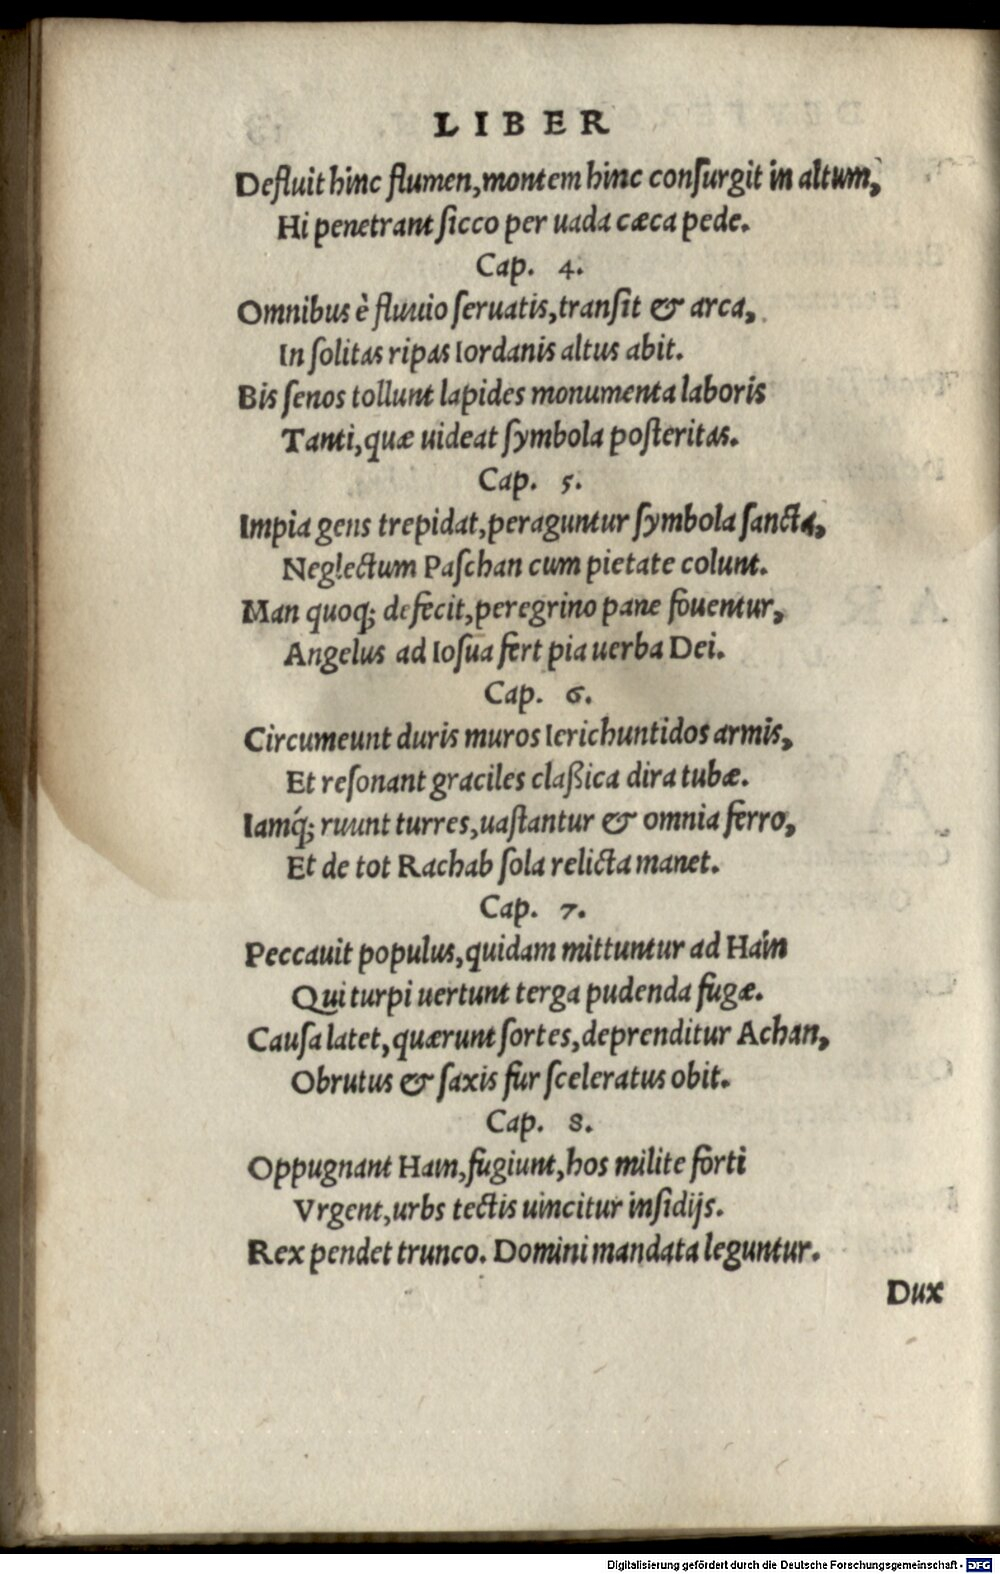 LIBER
Defluit hinc flumen, montem hinc conſurgit in altum,
Hi penetrant ſicco per uada cæca pede.
Cap. 4.
Omnibus è fluuio ſeruatis, tranſit & arca,
In ſolitas ripas Iordanis altus abit.
Bis ſenos tollunt lapides monumenta laboris
Tanti, quæ uideat ſymbola poſteritas.
Cap. 5.
Impia gens trepidat, peraguntur ſymbola ſancta,
Neglectum Paſchan cum pietate colunt.
Man quoq; defecit, peregrino pane fouentur,
Angelus ad Ioſua fert pia uerba Dei.
Cap. 6.
Circumeunt duris muros Ierichuntidos armis,
Et reſonant graciles claßica dira tubæ.
Iamq́; ruunt turres, uaſtantur & omnia ferro,
Et de tot Rachab ſola relicta manet.
Cap. 7.
Peccauit populus, quidam mittuntur ad Hain
Qui turpi uertunt terga pudenda fugæ.
Cauſa latet, quærunt ſortes, deprenditur Achan,
Obrutus & ſaxis fur ſceleratus obit.
Cap. 8.
Oppugnant Ham, fugiunt, hos milite forti
Vrgent, urbs tectis uincitur inſidijs.
Rex pendet trunco. Domini mandata leguntur.
Dux
Digitalisierung gefördert durch die Deutsche Forschungsgemeinschaft - DFG